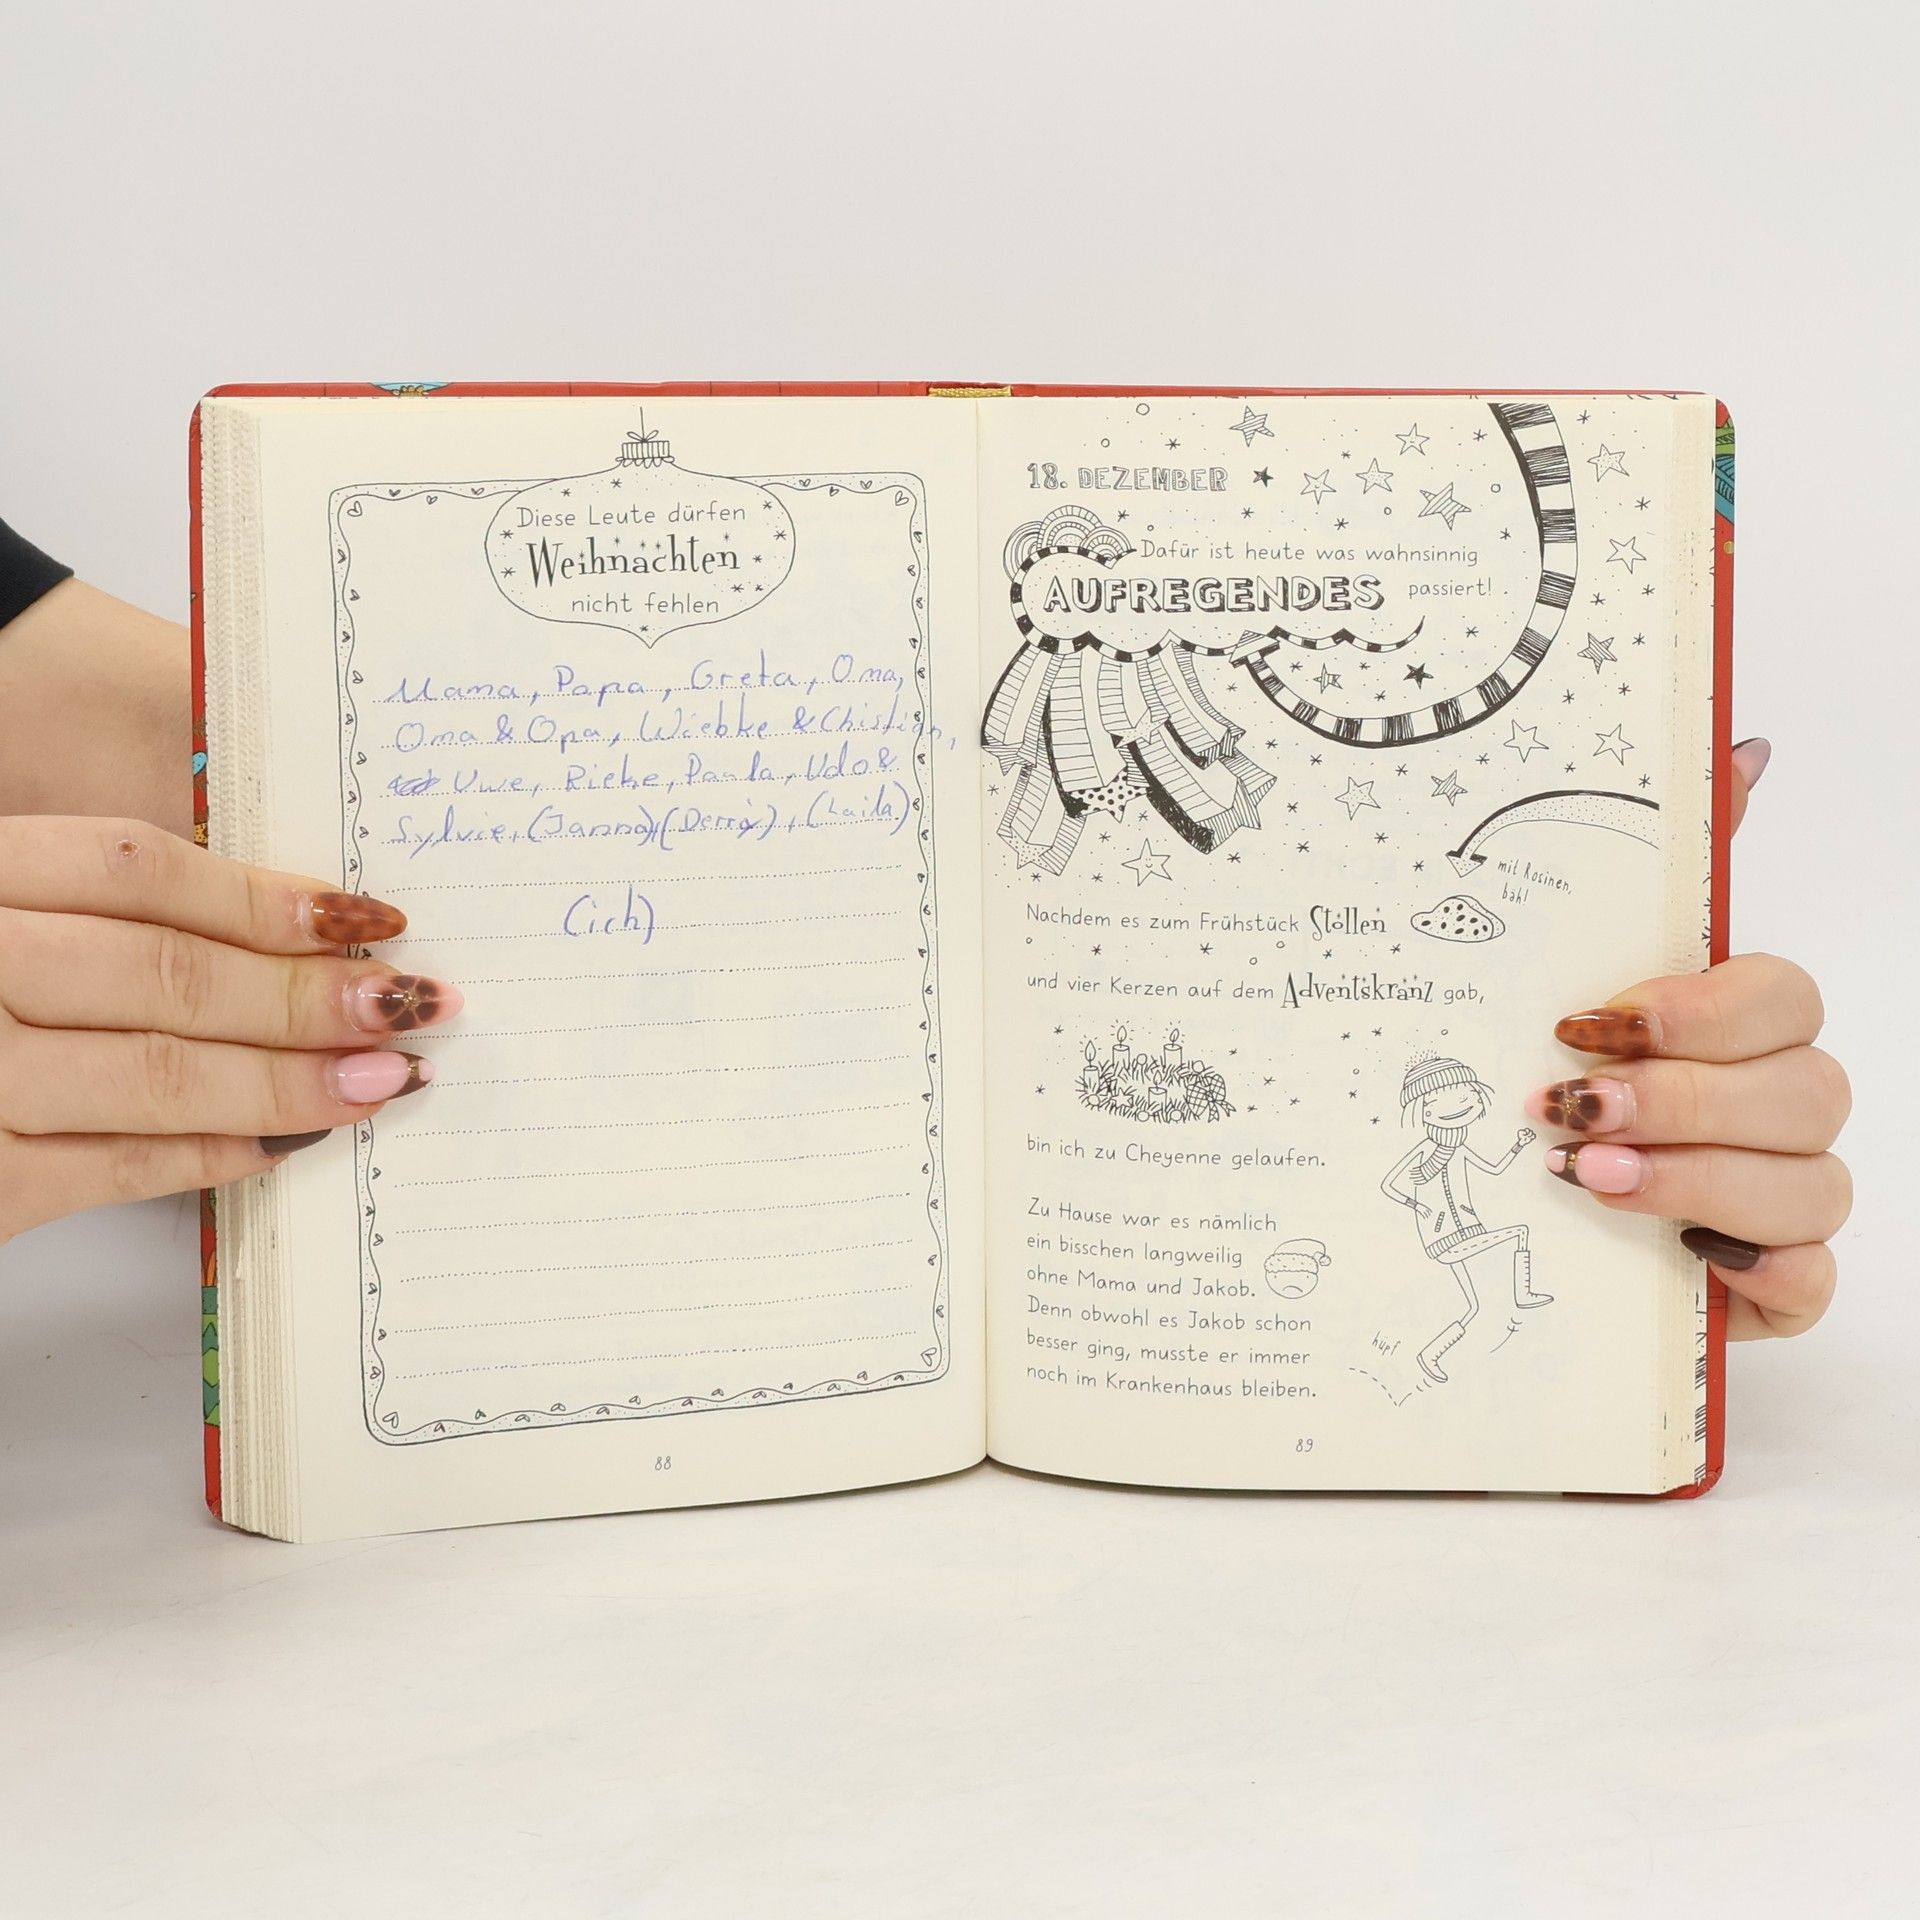 Diese Leute dürfen
Weihnachten
nicht fehlen
Mama, Papa, Greta, Oma,
Oma & Opa, Wiebke & Chistian,
Uwe, Rieke, Paula, Udo &
Sylvie, (Janna), (Derry), (Laila)
(ich)
88
18. DEZEMBER
Dafür ist heute was wahnsinnig
AUFREGENDES passiert!
mit Rosinen,
bäh!
Nachdem es zum Frühstück Stollen
und vier Kerzen auf dem Adventskranz gab,
bin ich zu Cheyenne gelaufen.
Zu Hause war es nämlich
ein bisschen langweilig
ohne Mama und Jakob.
Denn obwohl es Jakob schon
besser ging, musste er immer
noch im Krankenhaus bleiben.
hüpf
89